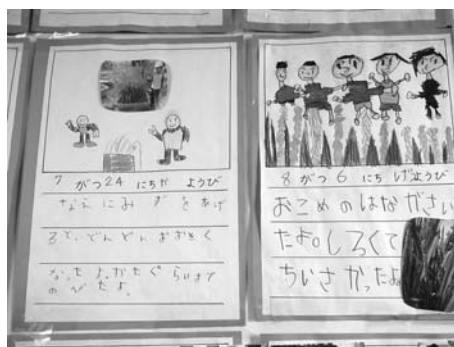 7 がつ24 にちか ようび
なえ にみ ずをあげ
ると、どんどん おおきく
なったよ。かたぐ らいまで
のびたよ。
8 がつ 6 にち げつようび
おこめのはながさい
たよ。しろくて
ちいさかったよ